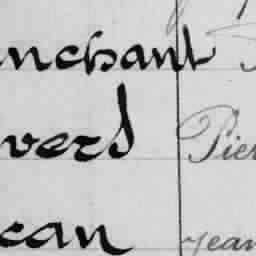 anchant
vers Pier
can Jean